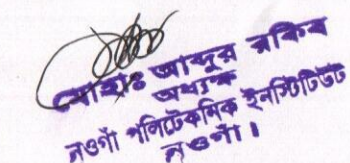 মোহাঃ আব্দুর রকিব
অধ্যক্ষ
নওগাঁ পলিটেকনিক ইনস্টিটিউট
নওগাঁ।